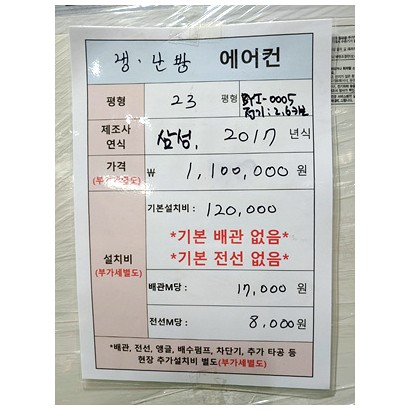 냉·난방 에어컨
평형 23 평형 BYI-0005
전기: 2.6kw
제조사 연식 삼성, 2017 년식
가격 (부가세별도) ₩ 1,100,000 원
기본설치비 : 120,000
*기본 배관 없음*
*기본 전선 없음*
설치비 (부가세별도)
배관M당 : 17,000 원
전선M당 : 8,000 원
*배관, 전선, 앵글, 배수펌프, 차단기, 추가 타공 등
현장 추가설치비 별도(부가세별도)